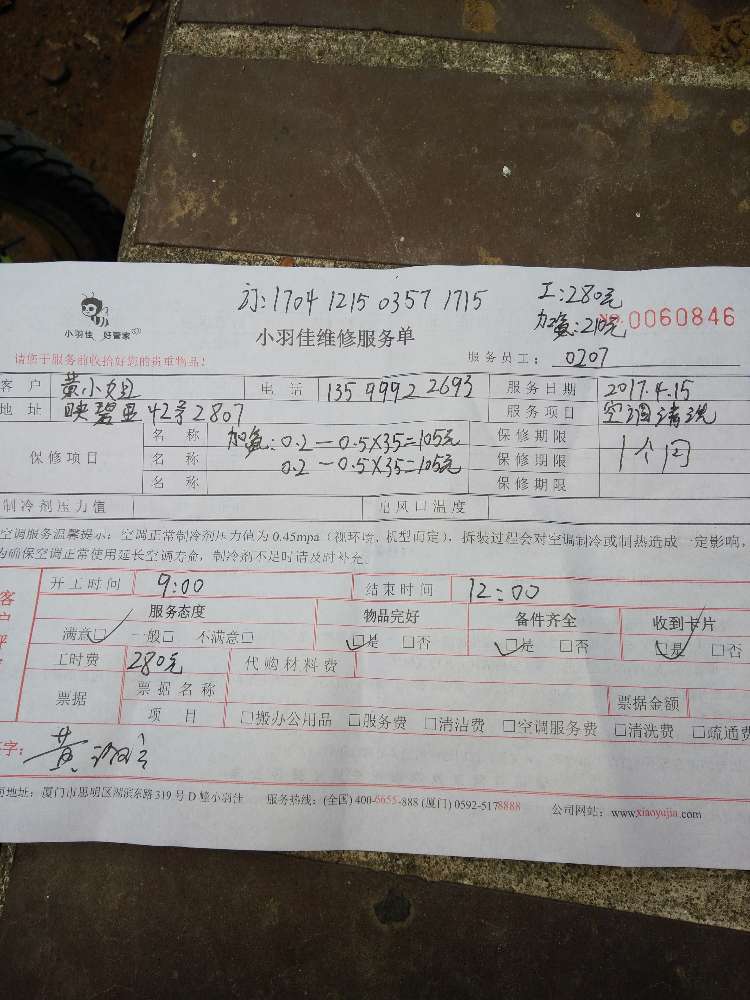 订:1704 1215 0357 1715
工:280元
加氨:210元
No.0060846
小羽佳 好管家
小羽佳维修服务单
请您于服务前收拾好您的贵重物品!
服务员工: 0207
客 户 黄小姐 电 话 135 9992 2693 服务日期 2017.4.15
地 址 映碧里42号2807 服务项目 空调清洗
保修项目
名 称 加氨:0.2-0.5X35=105元 保修期限
名 称 0.2-0.5X35=105元 保修期限 1个月
名 称 保修期限
制冷剂压力值 出风口温度
空调服务温馨提示:空调正常制冷剂压力值为0.45mpa(视环境、机型而定),拆装过程会对空调制冷或制热造成一定影响,
为确保空调正常使用延长空调寿命,制冷剂不足时请及时补充。
开工时间 9:00 结束时间 12:00
服务态度 物品完好 备件齐全 收到卡片
满意□ 一般□ 不满意□ □是 □否 □是 □否 □是 □否
工时费 280元 代购材料费
票据 票据名称 票据金额
项 目 □搬办公用品 □服务费 □清洁费 □空调服务费 □清洗费 □疏通费
字: 黄
地址:厦门市思明区湖滨东路319号D幢小羽佳 服务热线:(全国)400-6655-888 (厦门)0592-5178888 公司网站:www.xiaoyujia.com